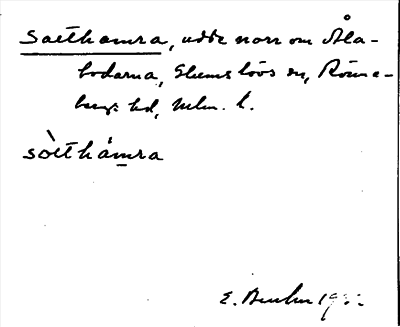 Saethamra, udde norr om Åla-
bodarna, Glumslövs sn, Rönne-
bergs hd, Mlm. l.
sòethåmra
E. 1932